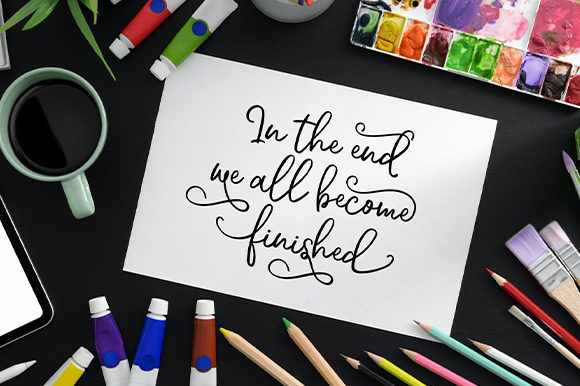 In the end
we all become
finished